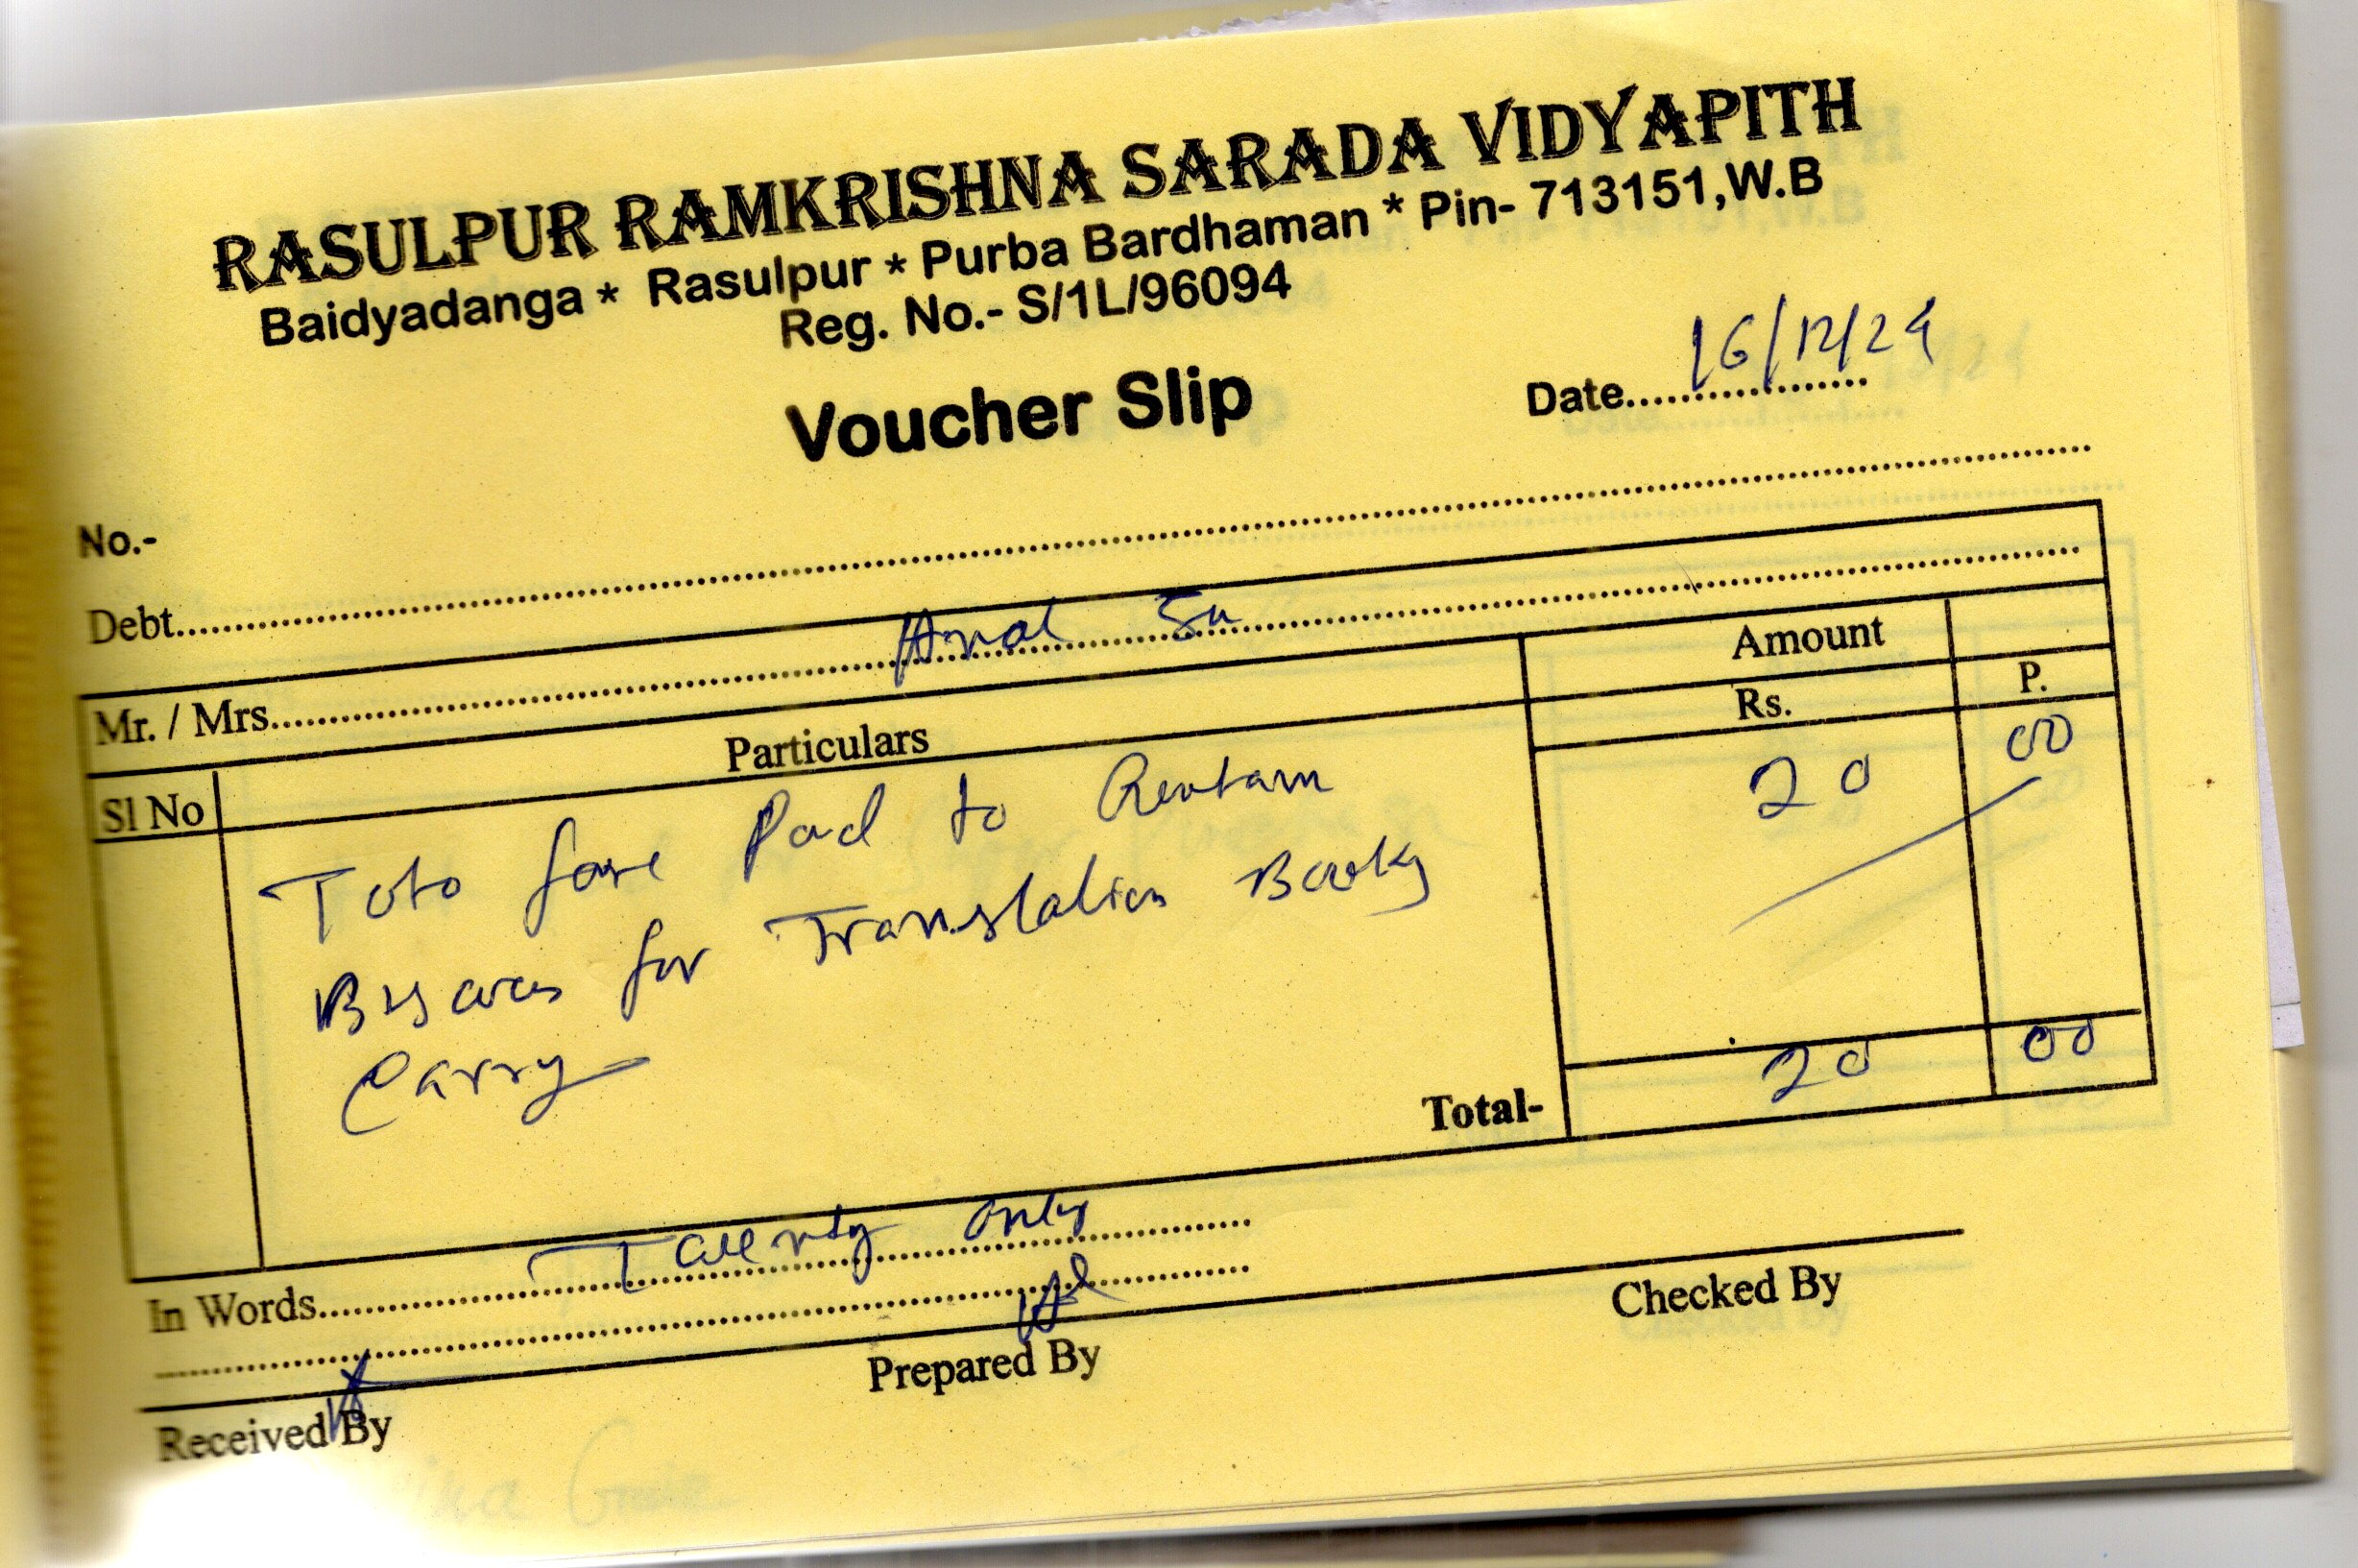 RASULPUR RAMKRISHNA SARADA VIDYAPITH
Baidyadanga * Rasulpur * Purba Bardhaman * Pin- 713151,W.B
Reg. No.- S/1L/96094
Voucher Slip
Date.................. 16/12/24
No.-
Debt..........
Mr. / Mrs.......... Amal
Sl No Particulars Amount
Rs. P.
Toto fare Paid to 20 00
for Translation Books
Carry
Total- 20 00
In Words.......... Twenty only
Received By Prepared By Checked By